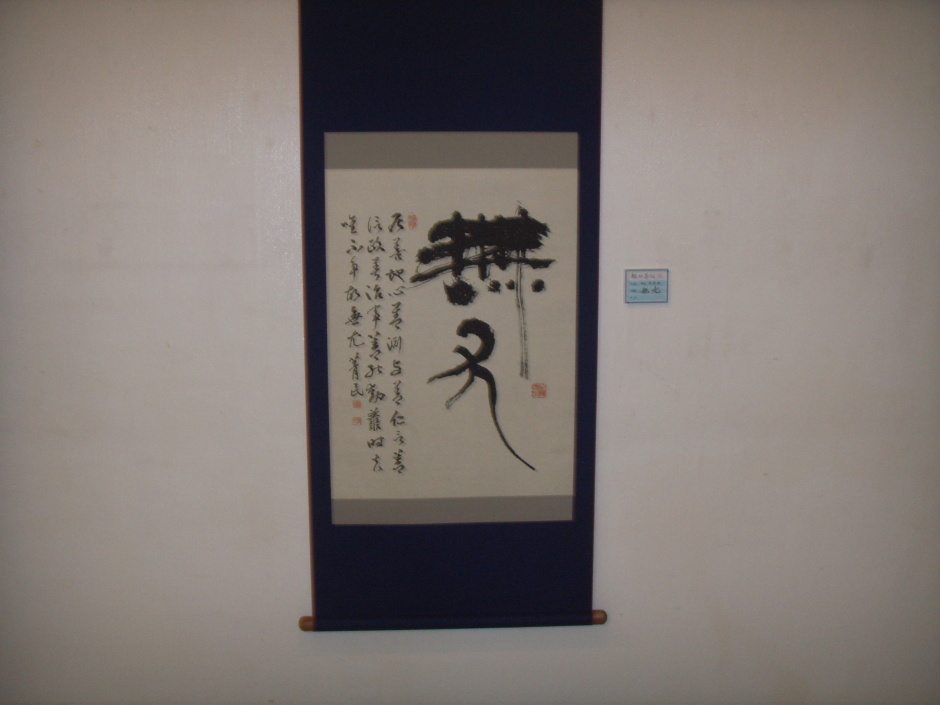 無尤
居善地心善渊与善仁言善
信政善治事善能動善時夫
唯不争故無尤
無尤